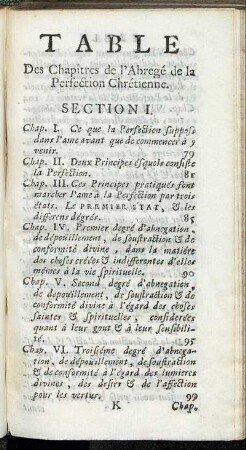 TABLE
Des Chapitres de l'Abregé de la
Perfection Chrétienne.
SECTION I.
Chap. I. Ce que la Perfection suppose
dans l'ame avant que de commencer à y
venir. 79
Chap. II. Deux Principes ésquels consiste
la Perfection. 81
Chap. III. Ces Principes pratiqués font
marcher l'ame à la Perfection par trois
états. LE PREMIER ETAT, & ses
differens dégrés. 85
Chap. IV. Premier degré d'abnegation,
de dépoüillement, de soustraction & de
conformité divine, dans la matière
des choses créées & indifferentes d'elles
mêmes à la vie spirituelle. 90
Chap. V. Second degré d'abnegation,
de depoüillement, de soustraction & de
conformité divine à l'égard des choses
saintes & spirituelles, considerées
quant à leur gout & à leur sensibili-
té. 95
Chap. VI. Troisiéme degré d'abnega-
tion, de dépoüillement, de soustraction
& de conformité à l'égard des lumieres
divines, des desirs & de l'affection
pour les vertus. 99
K Chap.